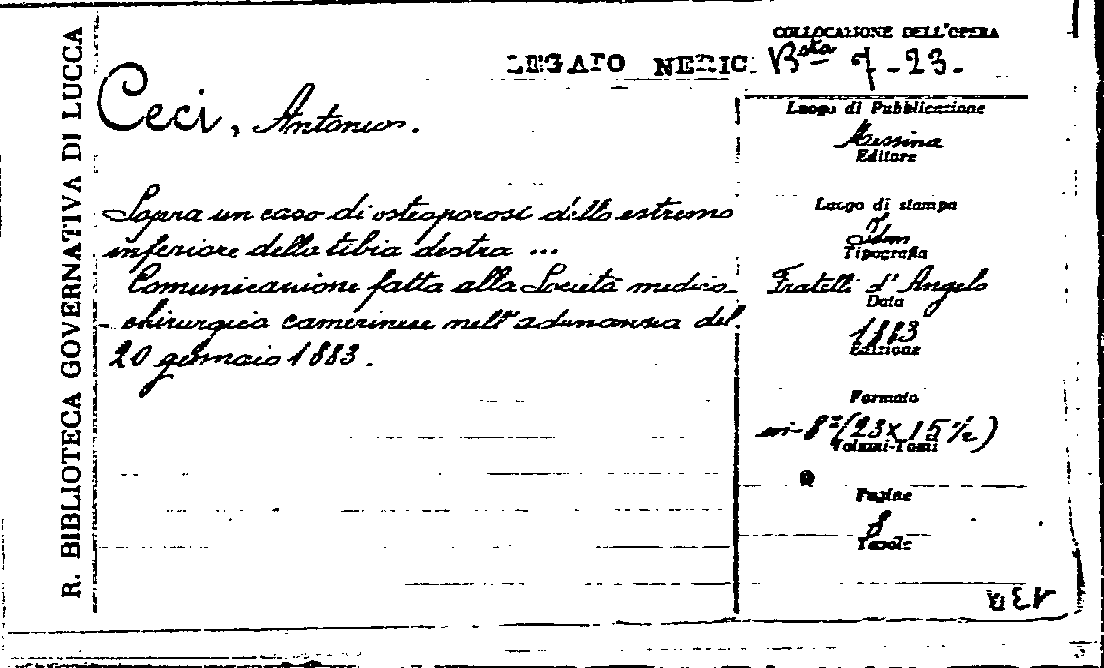 R. BIBLIOTECA GOVERNATIVA DI LUCCA
COLLOCAZIONE DELL'OPERA
LEGATO NERIC
B.sta 7-23.
Ceci, Antonio.
Luogo di Pubblicazione
Messina
Editore
Sopra un caso di osteoporosi dello estremo
inferiore della tibia destra ...
Comunicazione fatta alla Società medico
-chirurgica camerinese nell'adunanza del
20 gennaio 1883.
Luogo di stampa
Idem
Tipografia
Fratelli d'Angelo
Data
1883
Edizione
Formato
in-8° (23x15½)
Volumi-Tomi
Pagine
8
Tavole